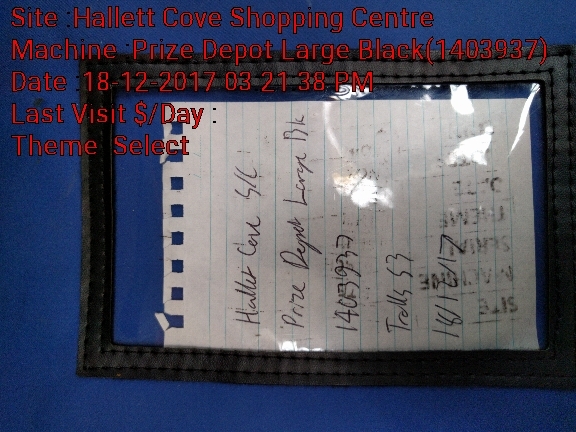 Site :Hallett Cove Shopping Centre
Machine :Prize Depot Large Black(1403937)
Date :18-12-2017 03 21 38 PM
Last Visit $/Day :
Theme Select
Hallet Cove S/C
Prize Depot Large Blk
1403937
18/12/17
THEME
MACHINE
SITE